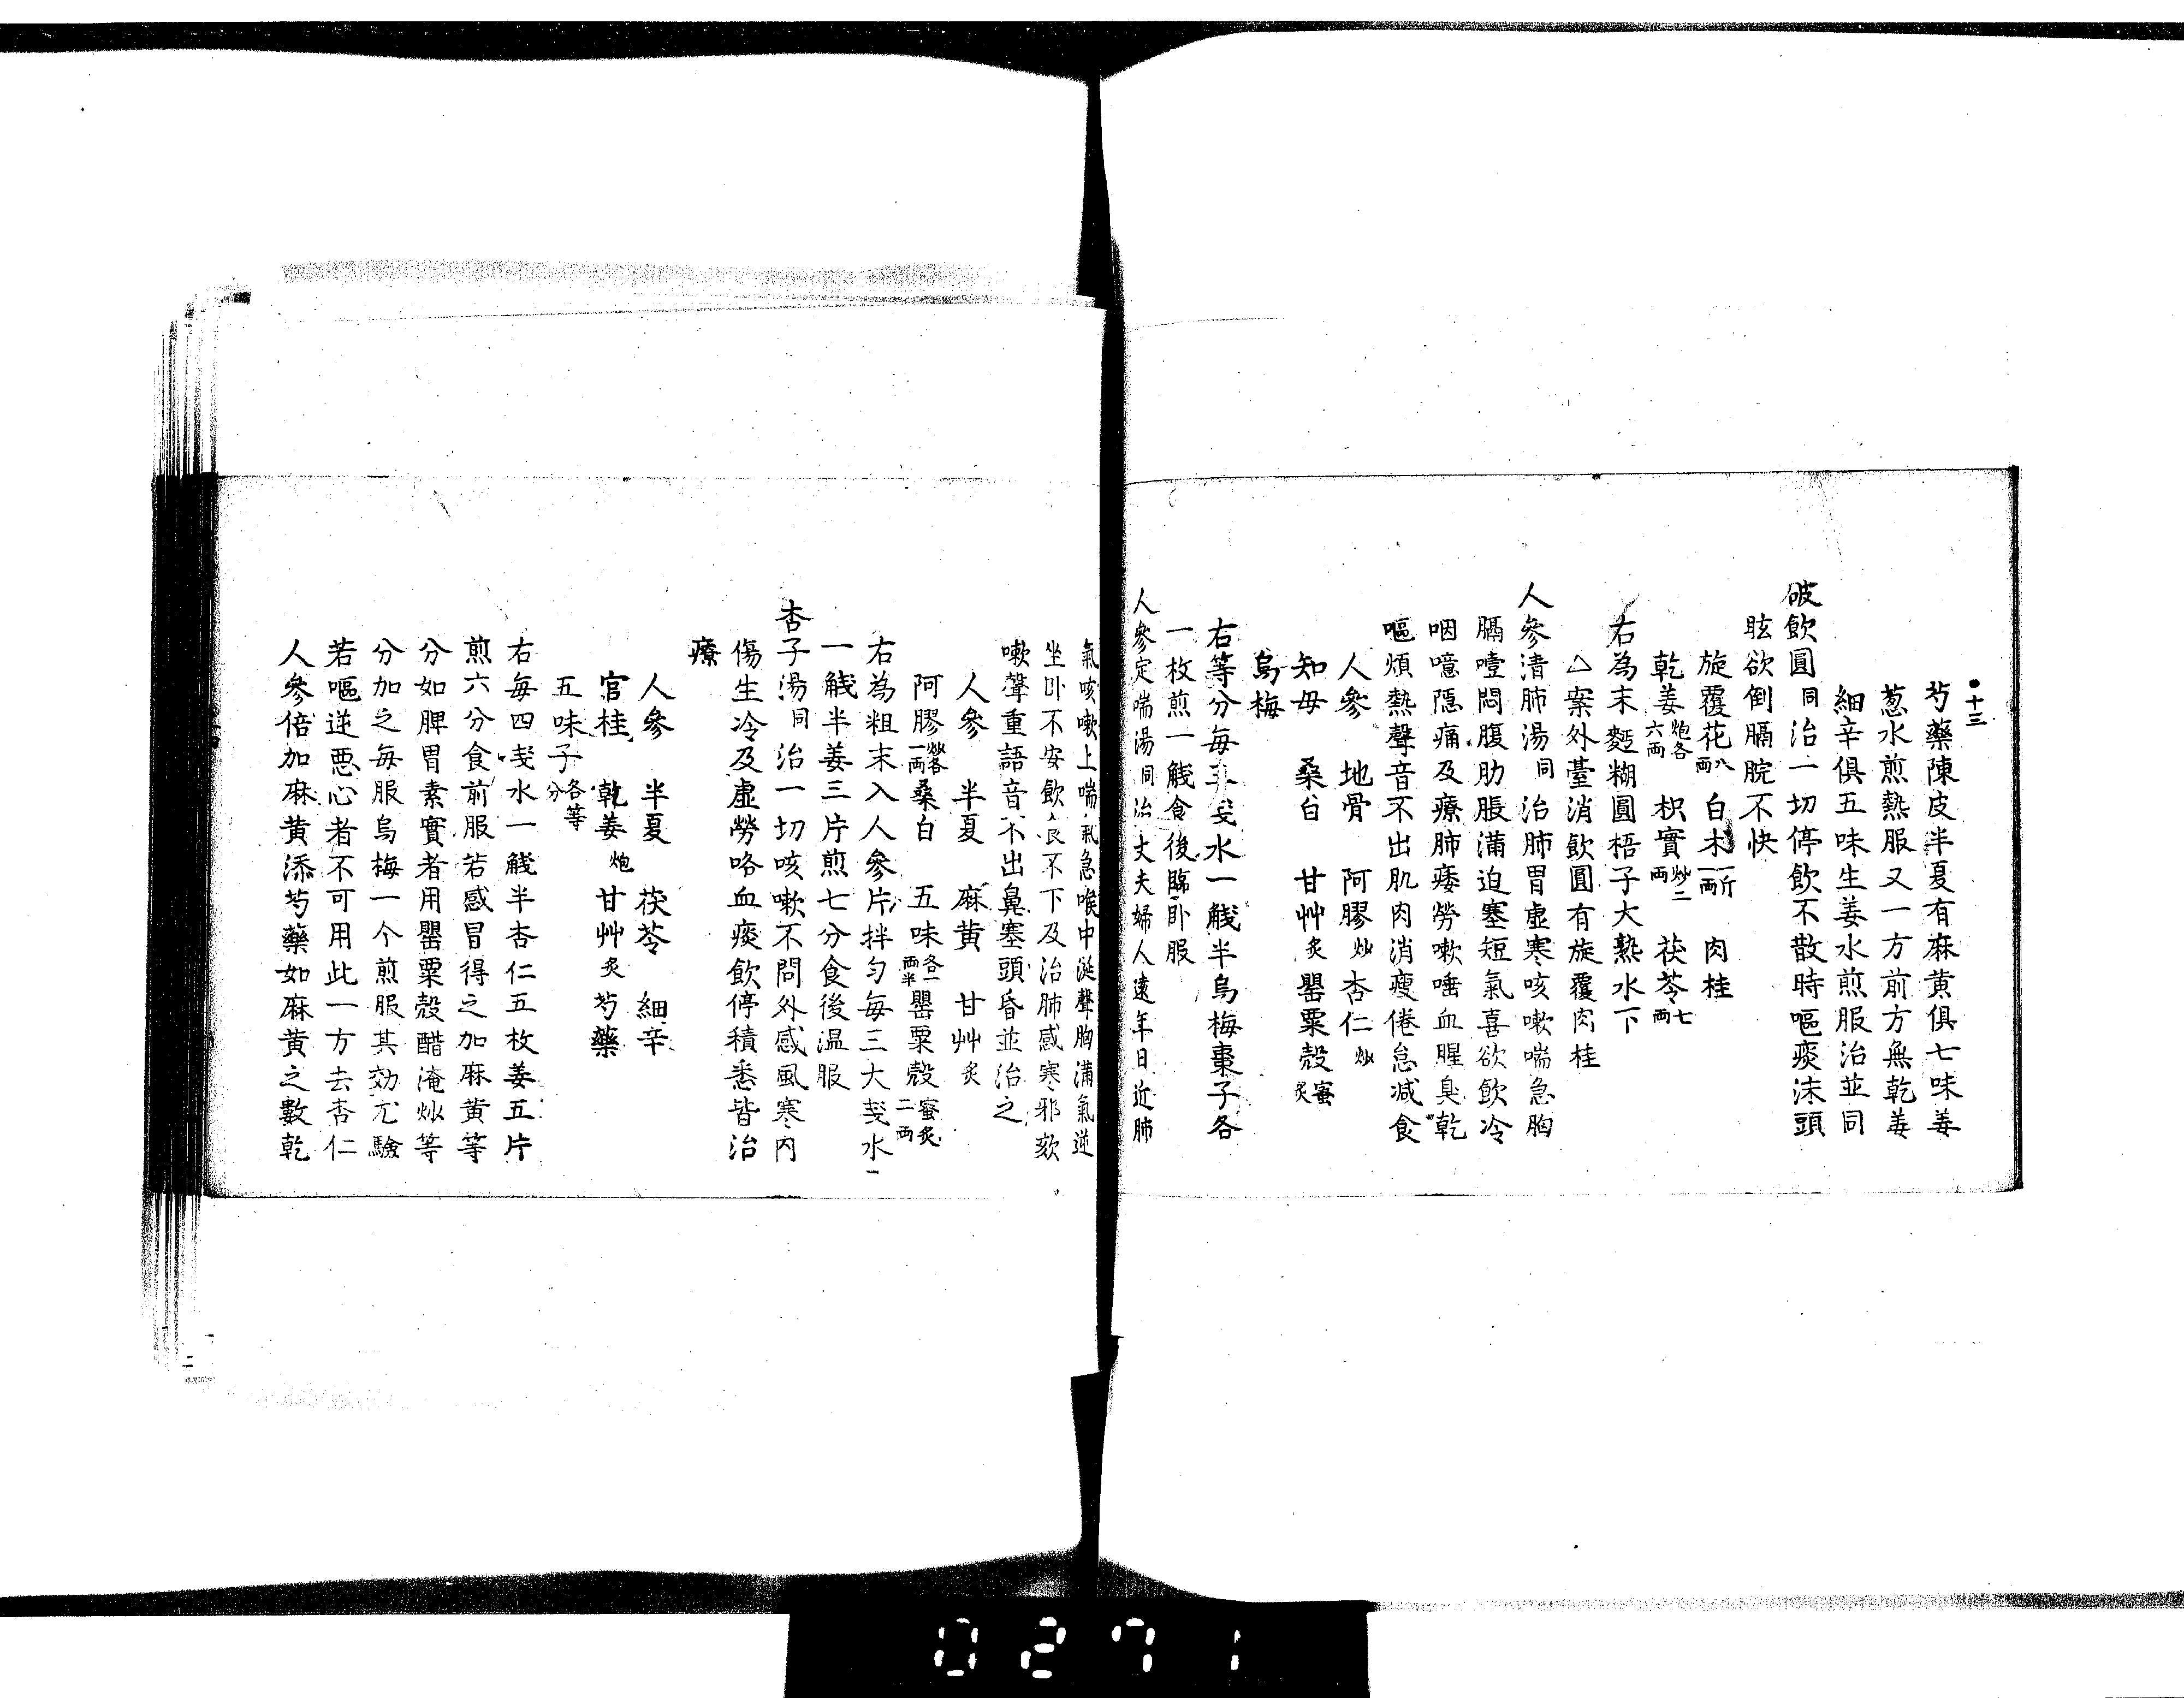 ●十三
芍藥陳皮半夏有麻黄俱七味姜
葱水煎熱服又一方前方無乾姜
細辛俱五味生姜水煎服治並同
破飲圓同治一切停飲不散時嘔痰沫頭
眩欲倒膈脘不快
旋覆花八両 白木一斤一両 肉桂
乾姜炮各六両 枳實炒二両 茯苓七両
右為末麪糊圓梧子大熟水下
△案外臺消飲圓有旋覆肉桂
人參清肺湯同治肺胃虚寒咳嗽喘急胸
膈噎悶腹肋脹滿迫塞短氣喜欲飲冷
咽噫隱痛及療肺痿勞嗽唾血腥臭乾
嘔煩熱聲音不出肌肉消瘦倦怠減食
人參 地骨 阿膠炒 杏仁炒
知母 桑白 甘艸炙 罌粟殻蜜炙
烏梅
右等分毎三戔水一盞半烏梅棗子各
一枚煎一盞食後臨卧服
人參定喘湯同治丈夫婦人遠年日近肺
氣咳嗽上喘氣急喉中涎聲胸滿氣逆
坐卧不安飲食不下及治肺感寒邪欬
嗽聲重語音不出鼻塞頭昏並治之
人參 半夏 麻黄 甘艸炙
阿膠炒各一両 桑白 五味各一両半 罌粟殻蜜炙二両
右為粗末入人參片拌匀毎三大戔水一
一盞半姜三片煎七分食後温服
杏子湯同治一切咳嗽不問外感風寒内
傷生冷及虚勞咯血痰飲停積悉皆治
療
人參 半夏 茯苓 細辛
官桂 乾姜炮 甘艸炙 芍藥
五味子各等分
右毎四戔水一盞半杏仁五枚姜五片
煎六分食前服若感冒得之加麻黄等
分如脾胃素實者用罌粟殻醋淹炒等
分加之毎服烏梅一个煎服其効尤驗
若嘔逆悪心者不可用此一方去杏仁
人參倍加麻黄添芍藥如麻黄之數乾
0271